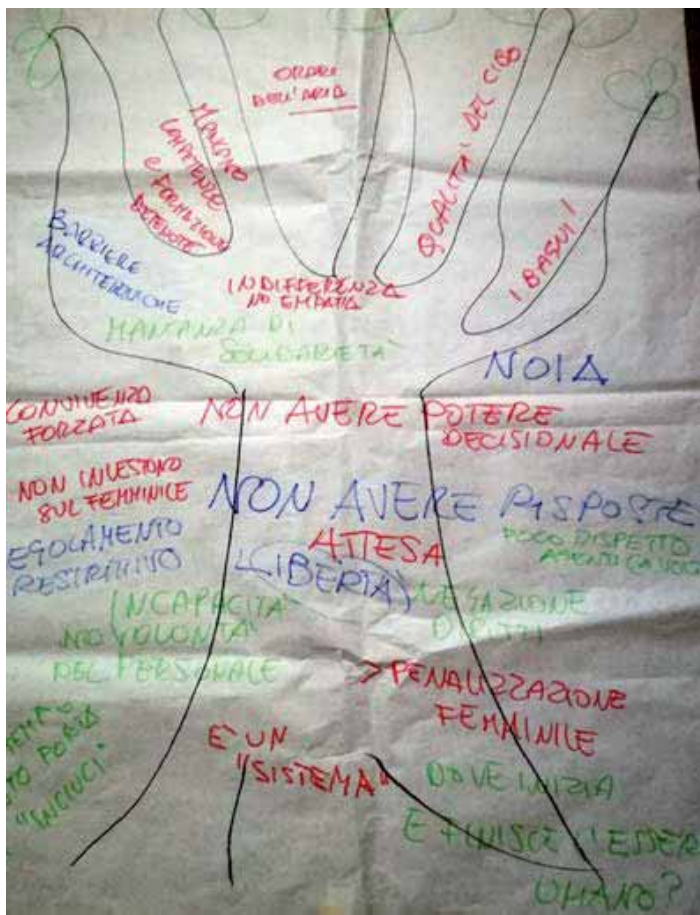 ORARI
DELL'ARIA
MANCANO
COMPETENZE
E FORMAZIONE
DETENUTE
QUALITA' DEL CIBO
I BAGNI!
BARRIERE
ARCHITETTONICHE
INDIFFERENZA
NO EMPATIA
MANCANZA DI
SOLIDARIETA'
NOIA
CONVIVENZA
FORZATA
NON AVERE POTERE
DECISIONALE
NON INVESTONO
SUL FEMMINILE
NON AVERE RISPOSTE
EGOLAMENTO
RESTRITTIVO
ATTESA
(LIBERTÀ)
POCO RISPETTO
INCAPACITA'
NO VOLONTÀ
DEL PERSONALE
NEGAZIONE
DIRITTI
> PENALIZZAZIONE
FEMMINILE
È UN
"SISTEMA"
PORTA
"INCIUCI"
DOVE INIZIA
E FINISCE L'ESSER
UMANO?